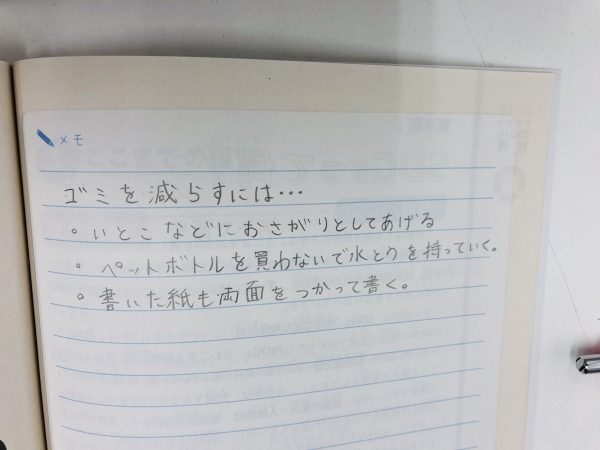 メモ
ゴミを減らすには…
。いとこなどにおさがりとしてあげる
。ペットボトルを買わないで水とうを持っていく。
。書いた紙も両面をつかって書く。